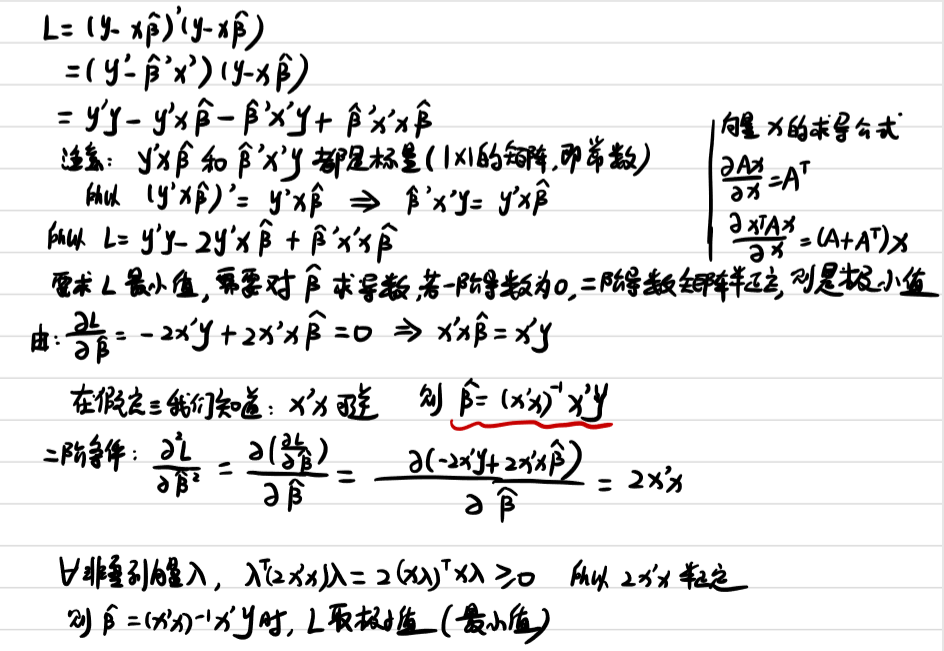 L= (y- xβ̂)'(y-xβ̂)
=(y'-β̂'x')(y-xβ̂)
= y'y - y'xβ̂ - β̂'x'y + β̂'x'xβ̂
注意: y'xβ̂ 和 β̂'x'y 都是标量(1×1的矩阵,即常数)
所以 (y'xβ̂)' = y'xβ̂ ⇒ β̂'x'y = y'xβ̂
所以 L= y'y - 2y'xβ̂ + β̂'x'xβ̂
向量x的求导公式
∂Ax/∂x = Aᵀ
∂xᵀAx/∂x = (A+Aᵀ)x
要求L最小值,需要对β̂求导数,若一阶导数为0,二阶导数矩阵半正定,则是极小值
由: ∂L/∂β̂ = -2x'y + 2x'xβ̂ = 0 ⇒ x'xβ̂ = x'y
在假定三我们知道: x'x可逆 则 β̂ = (x'x)⁻¹x'y
二阶条件: ∂²L/∂β̂² = ∂(∂L/∂β̂)/∂β̂ = ∂(-2x'y+2x'xβ̂)/∂β̂ = 2x'x
∀非零列向量λ, λᵀ(2x'x)λ = 2(xλ)ᵀxλ ≥0 所以 2x'x 半正定
则 β̂ = (x'x)⁻¹x'y时, L取极小值 (最小值)